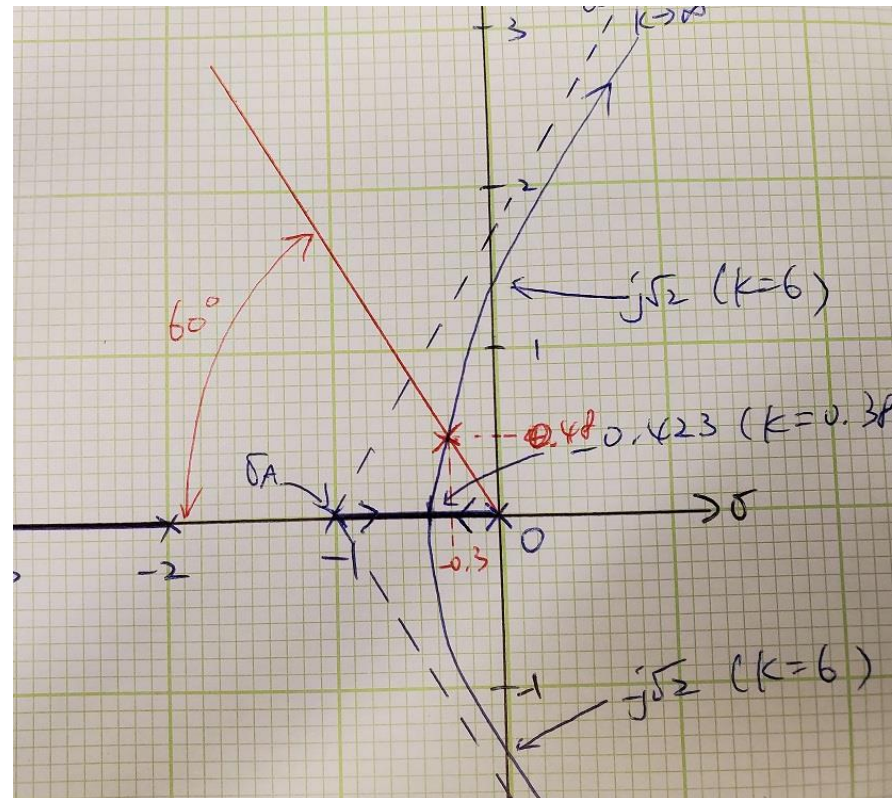 3
K→∞
2
60°
j√2 (K=6)
1
0.48
-0.423 (K=0.38
σA
σ
-2
-1
-0.3
0
-1
-j√2 (K=6)